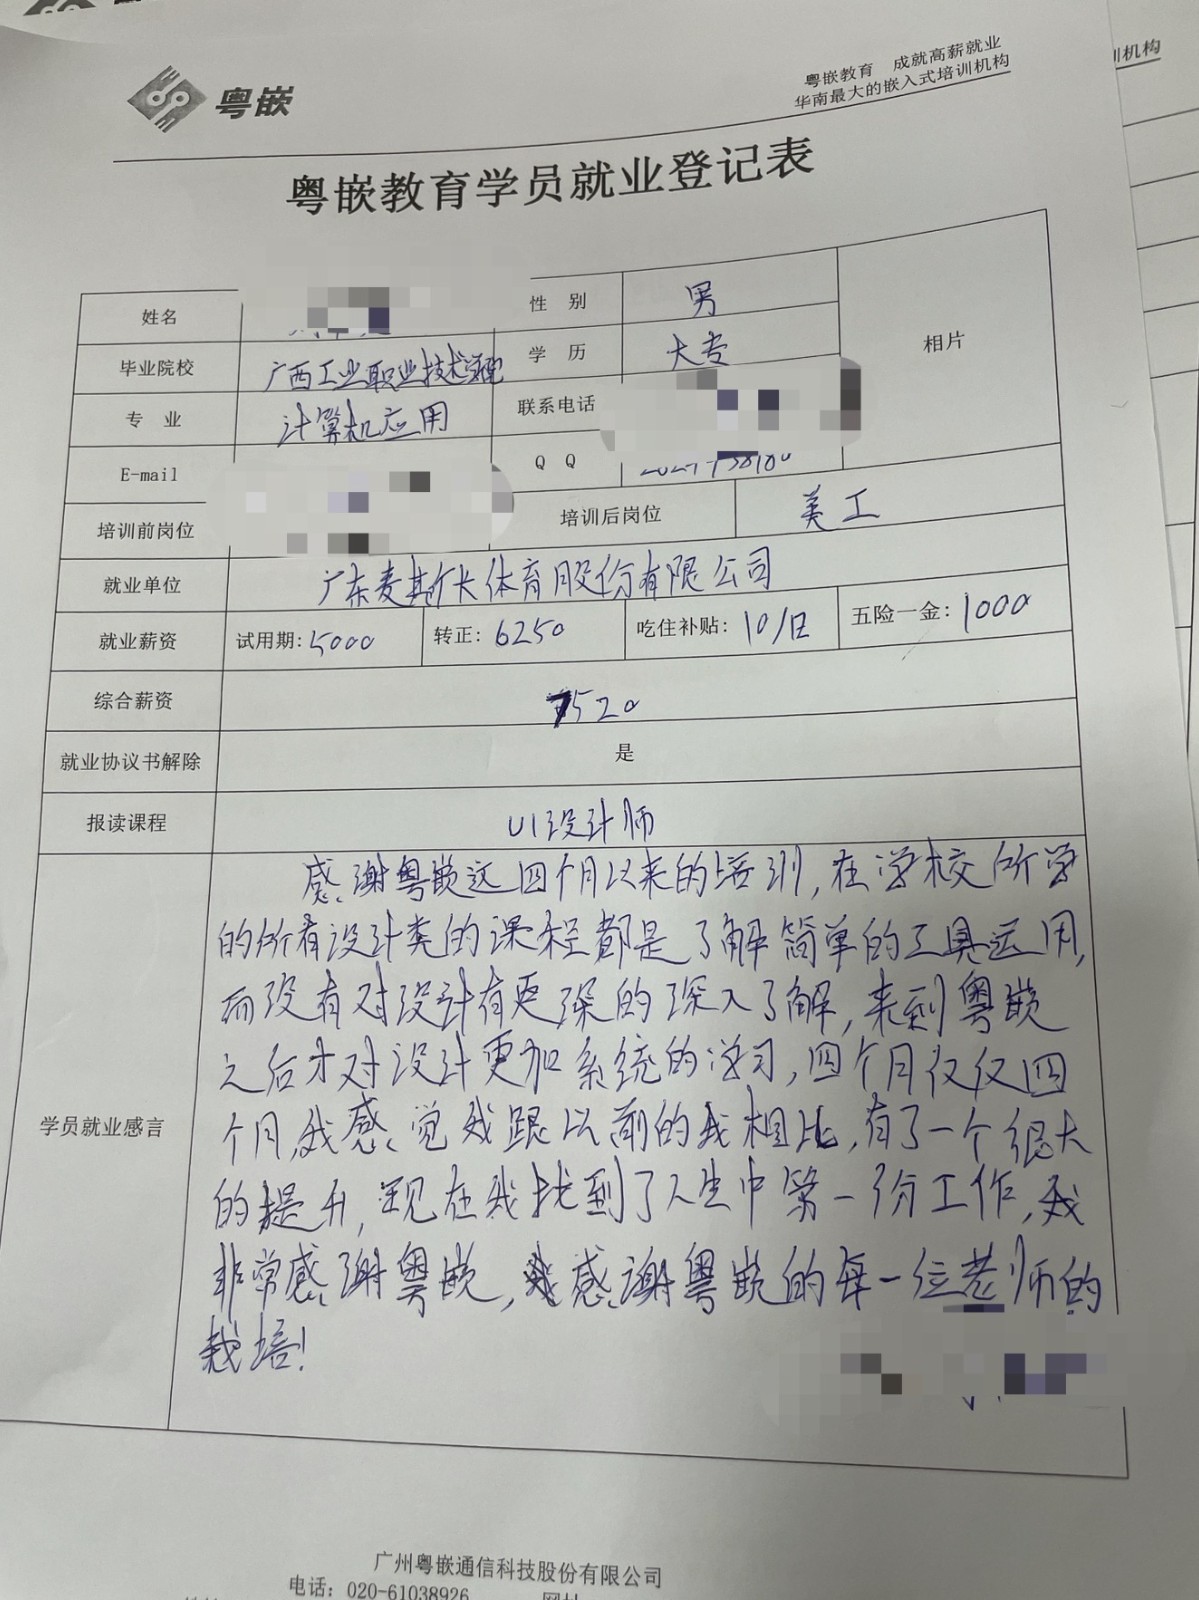 粤嵌
粤嵌教育 成就高薪就业
华南最大的嵌入式培训机构
川机构
粤嵌教育学员就业登记表
姓名
性 别 男
相片
毕业院校 广西工业职业技术学院 学 历 大专
专 业 计算机应用 联系电话
E-mail
Q Q
培训前岗位 培训后岗位 美工
就业单位 广东麦斯卡体育股份有限公司
就业薪资 试用期:5000 转正:6250 吃住补贴:10/日 五险一金:1000
综合薪资 7520
就业协议书解除 是
报读课程 UI设计师
学员就业感言
感谢粤嵌这四个月以来的培训,在学校所学
的所有设计类的课程都是了解简单的工具运用,
而没有对设计有更深的深入了解,来到粤嵌
之后才对设计更加系统的学习,四个月仅仅四
个月,我感觉我跟以前的我相比,有了一个很大
的提升,现在我找到了人生中第一份工作,我
非常感谢粤嵌,我感谢粤嵌的每一位老师的
栽培!
广州粤嵌通信科技股份有限公司
电话:020-61038926